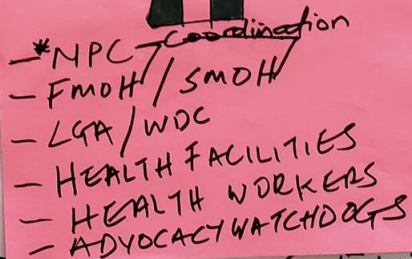 Coordination
- *NPC
- FMOH / SMOH
- LGA / WDC
- HEALTH FACILITIES
- HEALTH WORKERS
- ADVOCACY WATCHDOGS